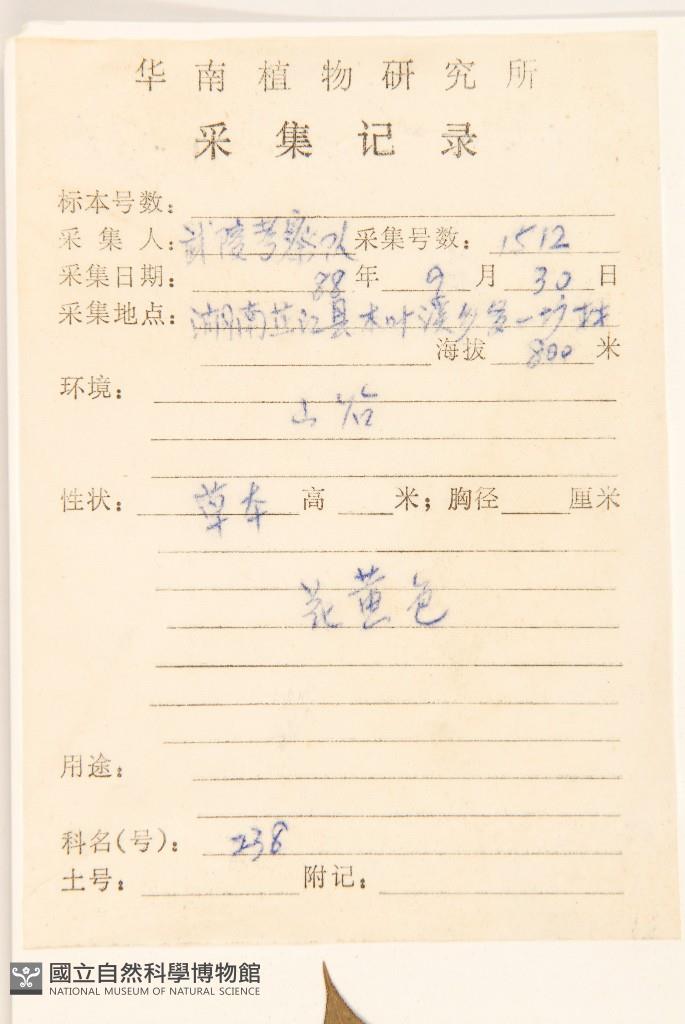 华南植物研究所
采集记录
标本号数:
采集人: 武陵考察队 采集号数: 1512
采集日期: 88年 9月 30日
采集地点: 湖南芷江县木叶溪乡 一 村
海拔 800 米
环境:
山谷
性状: 草本 高 米; 胸径 厘米
花黄色
用途:
科名(号): 238
土号: 附记:
國立自然科學博物館
NATIONAL MUSEUM OF NATURAL SCIENCE